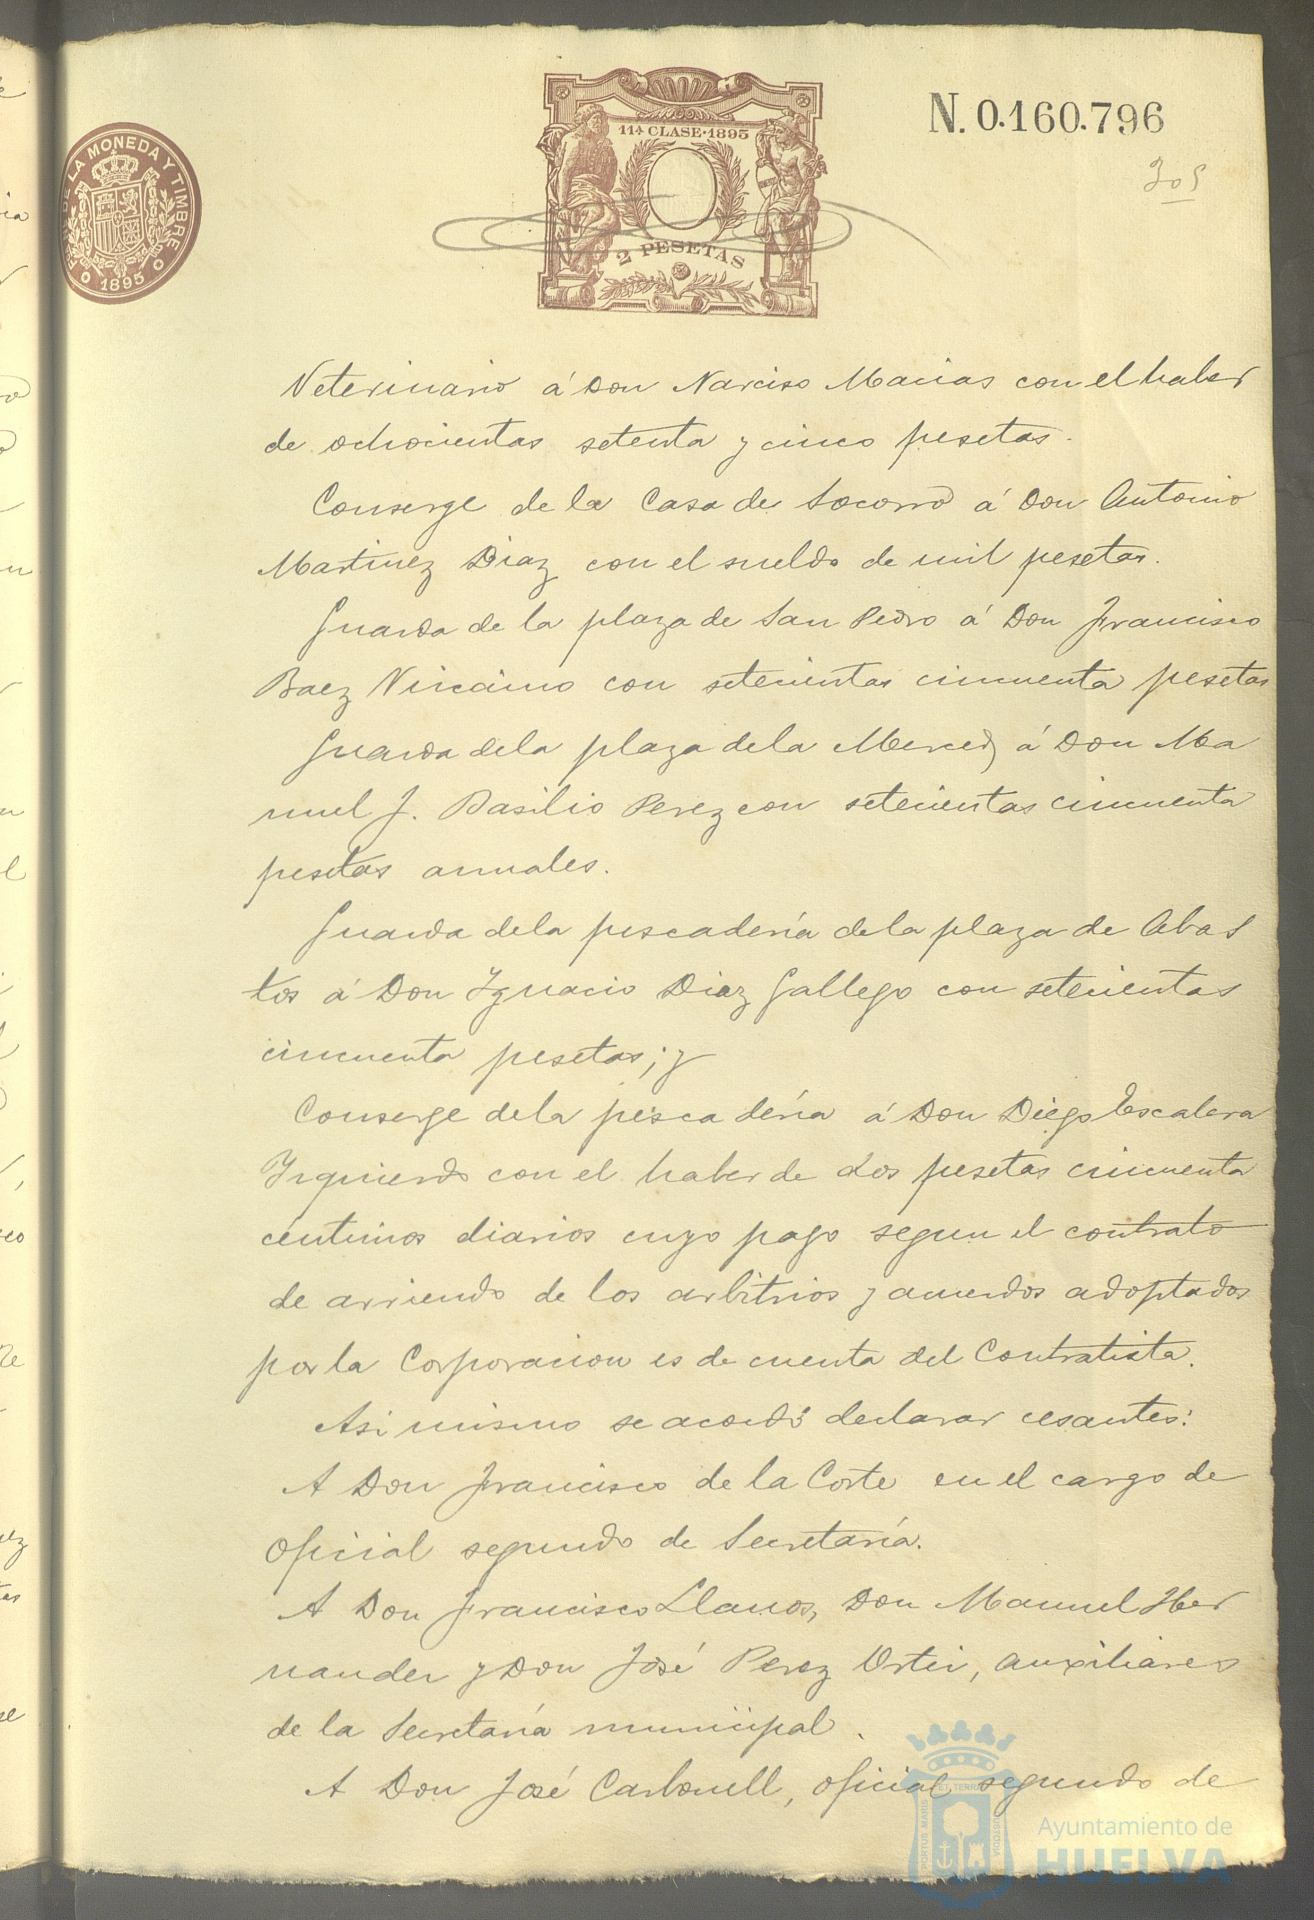 N. 0.160.796
305
DE LA MONEDA Y TIMBRE
1895
11ª CLASE·1895
2 PESETAS
Veterinario á Don Narciso Macias con el haber
de ochocientas setenta y cinco pesetas.
Conserge de la Casa de Socorro á Don Antonio
Martinez Diaz con el sueldo de mil pesetas.
Guarda de la plaza de San Pedro á Don Francisco
Baez Vizcaino con setecientas cincuenta pesetas
Guarda de la plaza de la Merced á Don Ma
nuel J. Basilio Perez con setecientas cincuenta
pesetas anuales.
Guarda de la pescadería de la plaza de Abas
tos á Don Ygnacio Diaz Gallego con setecientas
cincuenta pesetas; y
Conserge de la pescadería á Don Diego Escalera
Yzquierdo con el haber de dos pesetas cincuenta
centimos diarios cuyo pago segun el contrato
de arriendo de los arbitrios y acuerdos adoptados
por la Corporacion es de cuenta del Contratista.
Asi mismo se acordó declarar cesantes:
A Don Francisco de la Corte en el cargo de
oficial segundo de Secretaría.
A Don Francisco Llanos, Don Manuel Her
nandez y Don José Perez Ortiz, auxiliares
de la Secretaría municipal.
A Don José Carbonell, oficial segundo de
PORTUS MARIS ET TERRAE CUSTODIA
Ayuntamiento de
HUELVA